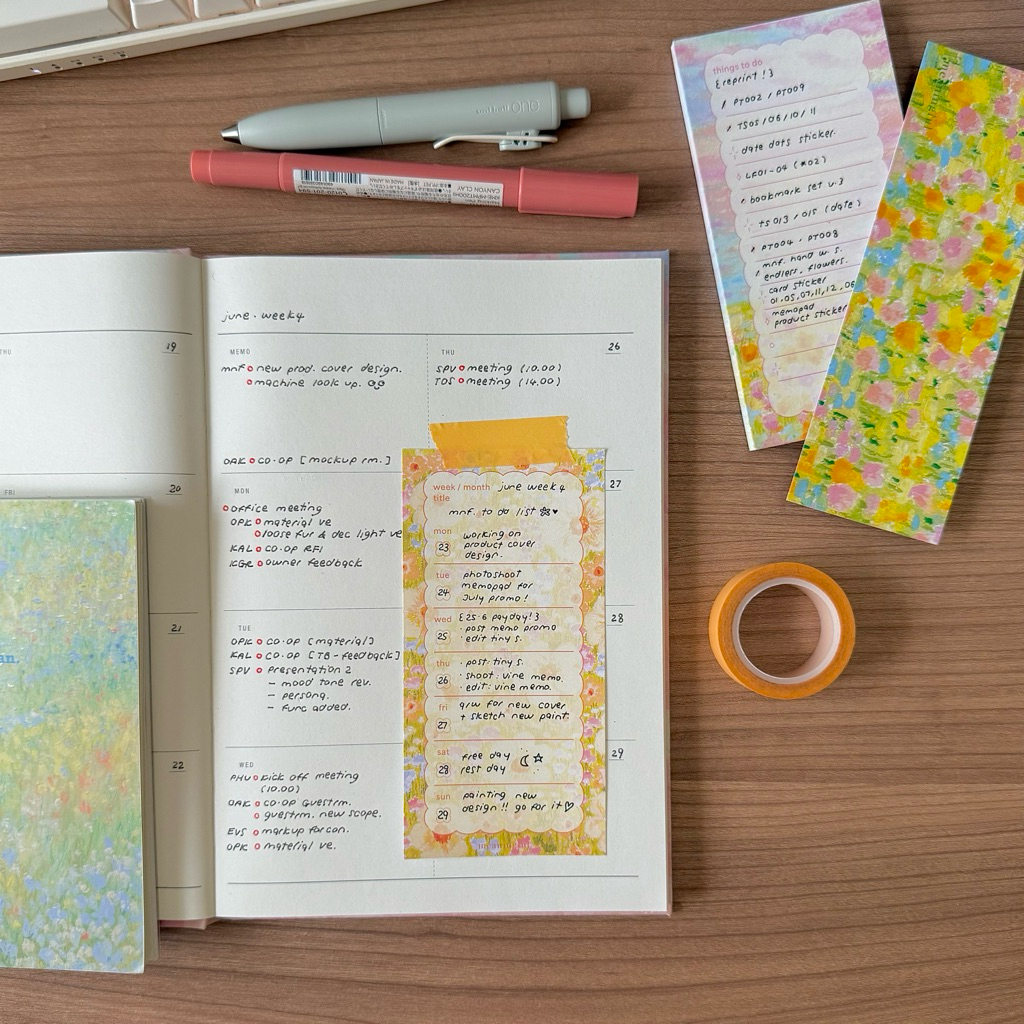 june. week4
MEMO
mnf. new prod. cover design.
machine look up.
OAK CO-OP [mockup rm.]
MON
office meeting
OPK material ve
loose fur & dec light ve
KAL CO-OP RFI
KGR owner feedback
TUE
OPK CO-OP [material]
KAL CO-OP [TB-feedback]
SPV Presentation 2
— mood tone rev.
— persona.
— func added.
WED
PHU kick off meeting
(10.00)
OAK CO-OP Guestrm.
guestrm. new scope.
EVS markup for con.
OPK material ve.
THU
26
SPV meeting (10.00)
TOS meeting (14.00)
27
28
29
week / month june week 4
title
mnf. to do list
mon
23
working on
product cover
design.
tue
24
photoshoot
memopad for
July promo!
wed
25
{25.6 payday!}
· post memo promo
· edit tiny s.
thu
26
· post: tiny s.
· shoot: vine memo.
· edit: vine memo.
fri
27
q/w for new cover
+ sketch new paint.
sat
28
free day
rest day
sun
29
painting new
design!! go for it
THU
19
FRI
20
21
22
an.
things to do
{reprint!}
PT002 / PT009
TS05 / 06 / 10 / 11
date dots sticker.
LE01-04 (*02)
bookmark set v.3
TS 013 / 015 (date)
PT004 . PT008
mnf. hand w. s.
endless. flowers.
card sticker
01,05,07,11,12,06
memopad
product sticker
CANYON CLAY
MADE IN JAPAN